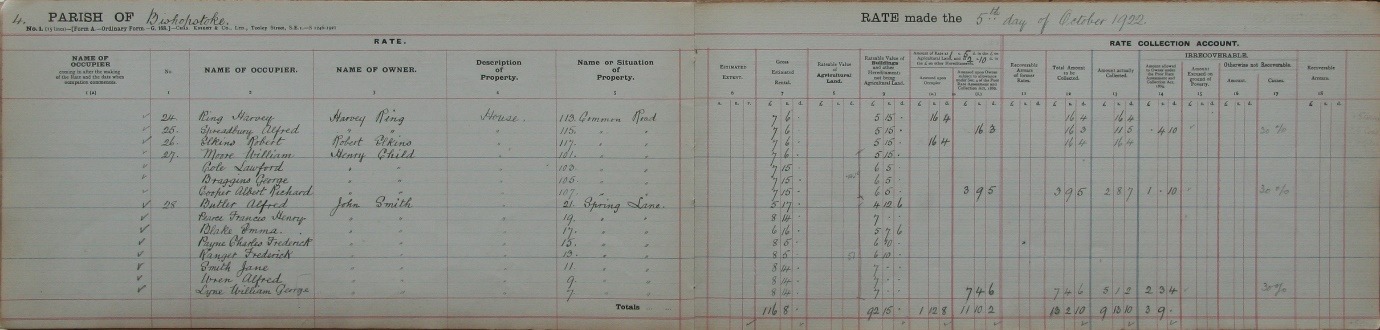 4. PARISH OF Bishopstoke. RATE made the 5th day of October 1922.
RATE. RATE COLLECTION ACCOUNT.
NAME OF OCCUPIER coming in after the making of the Rate and the date when occupation commenced. No. NAME OF OCCUPIER. NAME OF OWNER. Description of Property. Name or Situation of Property. ESTIMATED EXTENT. Gross Estimated Rental. Rateable Value of Agricultural Land. Rateable Value of Buildings and other Hereditaments not being Agricultural Land. Recoverable Arrears of former Rates. Total Amount to be Collected. Amount actually Collected. IRRECOVERABLE. Amount Excused on ground of Poverty. Otherwise not Recoverable. Amount. Causes. Recoverable Arrears.
24. Ring Harvey Harvey Ring House. 113. Common Road 7 6 5 15 16 4 16 4 16 4
25. Spreadbury Alfred " " " 115. " " 7 6 5 15 16 3 16 3 11 5 4 10 30 %
26. Elkins Robert Robert Elkins " 117. " " 7 6 5 15 16 4 16 4 16 4
27. Moore William Henry Child " 101. " " 7 6 5 15
Cole Lawford " " " 103. " " 7 15 6 5
Braggins George " " " 105. " " 7 15 6 5
Cooper Albert Richard " " " 107. " " 7 15 6 5 3 9 5 3 9 5 2 8 7 1 - 10 30 %
28 Butler Alfred John Smith " 21. Spring Lane. 5 17 4 12 6
Pearce Francis Henry " " " 19. " " 8 14 7
Blake Emma. " " " 17. " " 6 16 5 7 6
Payne Charles Frederick " " " 15. " " 8 5 6 10
Ranger Frederick " " " 13. " " 8 5 6 10
Smith Jane " " " 11. " " 8 14 7
Wren Alfred " " " 9. " " 8 14 7
Lyne William George " " " 7 " " 8 14 7 7 4 6 7 4 6 5 1 2 2 3 4 30 %
Totals 116 8 92 15 1 12 8 11 10 2 13 2 10 9 13 10 3 9